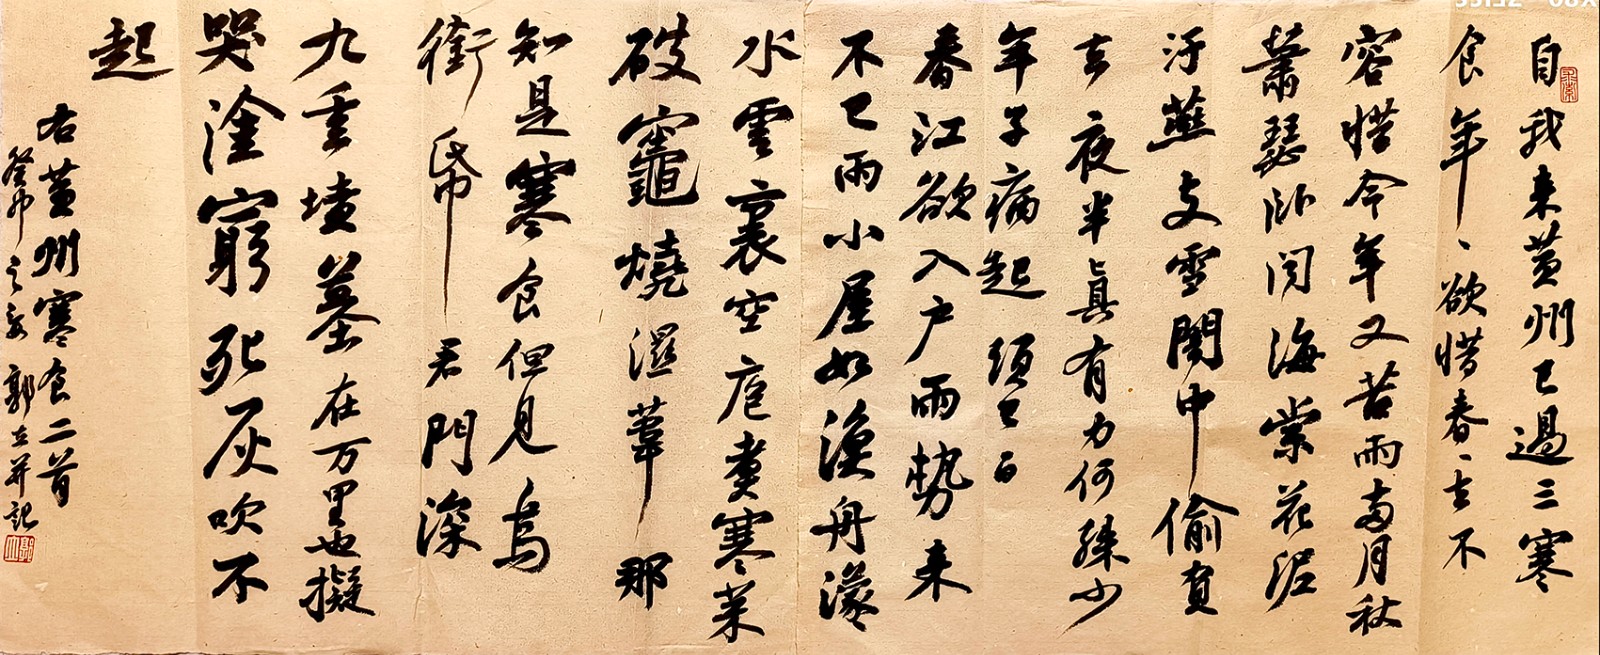 自我来黄州已過三寒
食年々欲惜春々去不
容惜今年又苦雨两月秋
蕭瑟卧闻海棠花泥
汙燕支雪闇中偷負
去夜半真有力何殊少
年子病起须已白
春江欲入户雨势来
不已雨小屋如漁舟濛
水雲裏空庖煮寒菜
破竈燒濕葦那
知是寒食但见烏
銜帋君門深
九重墳墓在万里也擬
哭塗窮死灰吹不
起
右黄州寒食二首
癸卯之 郭立并記